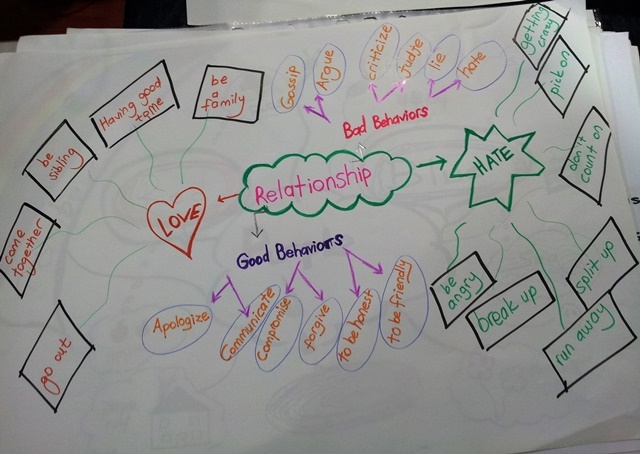 Relationship
LOVE
be
a
family
Having good
time
be
sibling
come
together
go out
Bad Behaviors
Gossip
Argue
criticize
judje
lie
hate
HATE
getting
crazy
pick on
don't
count on
split up
run away
break up
be
angry
Good Behaviours
Apologize
Communicate
Compromise
forgive
to be honest
to be friendly